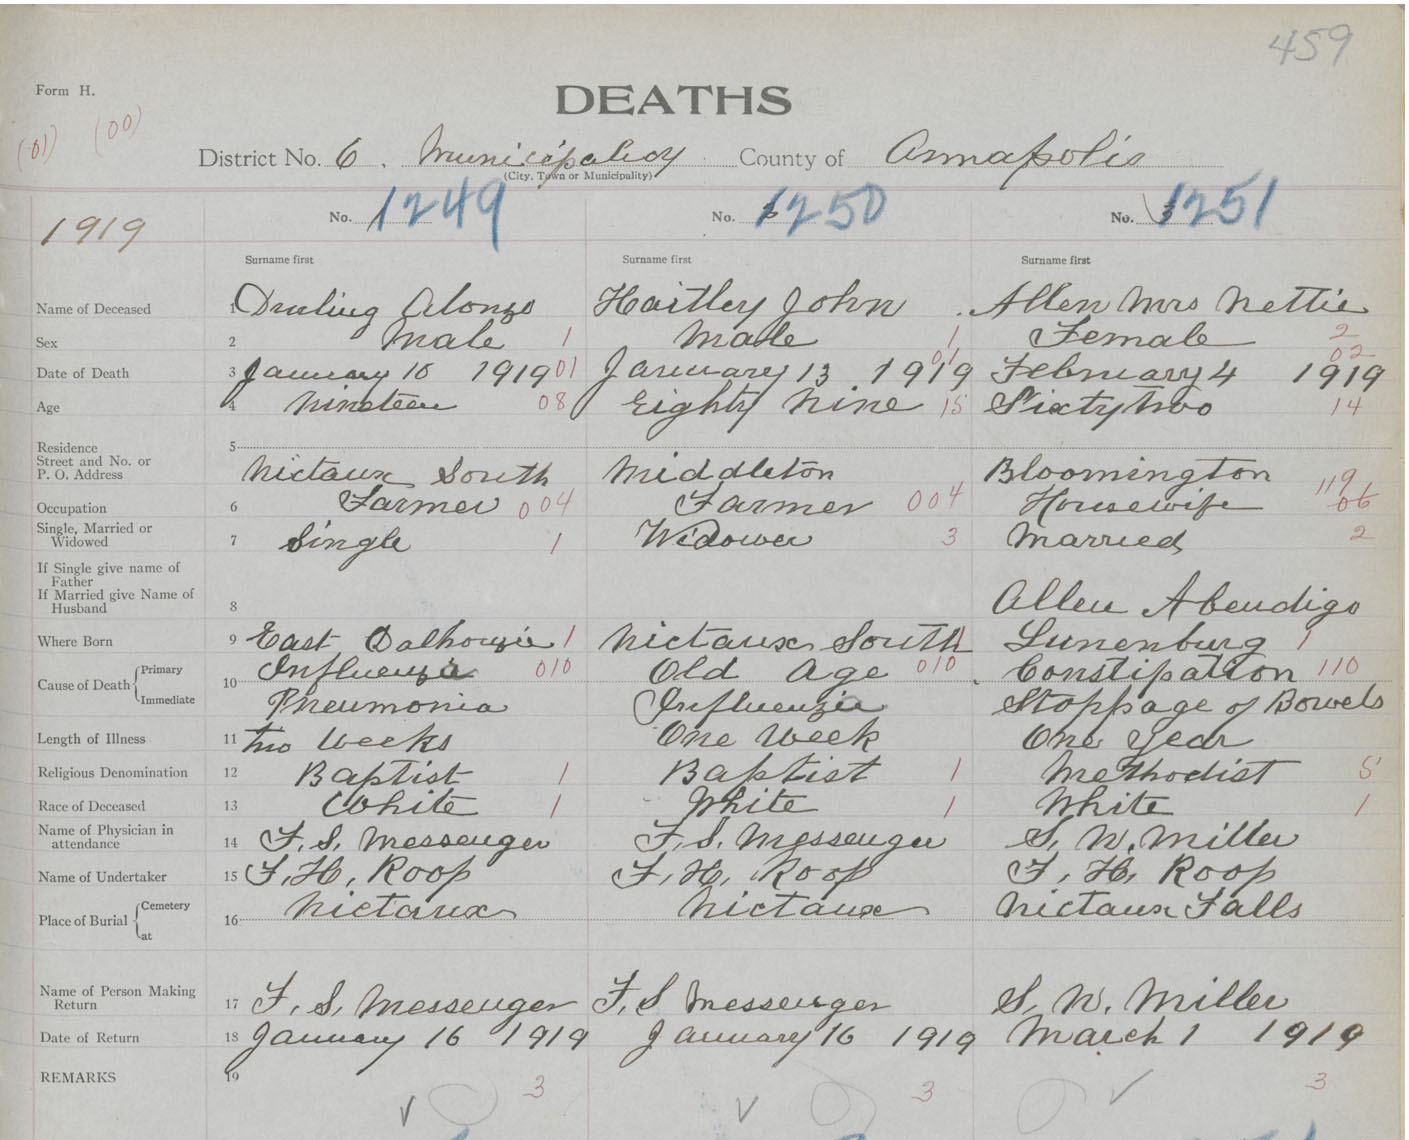 459
Form H.
DEATHS
(01) (00)
District No. 6. Municipality County of Annapolis
(City, Town or Municipality)
1919 No. 1249 No. 1250 No. 1251
Surname first Surname first Surname first
Name of Deceased 1 Alonzo Hartley John Allen Mrs Nettie
Sex 2 Male 1 Male 1 Female 2
Date of Death 3 January 10 1919 01 January 13 1919 01 February 4 1919 02
Age 4 Nineteen 08 Eighty Nine 15 Sixty two 14
Residence
Street and No. or
P. O. Address 5 Nictaux South Middleton Bloomington
Occupation 6 Farmer 004 Farmer 004 Housewife 119 06
Single, Married or
Widowed 7 Single 1 Widower 3 Married 2
If Single give name of
Father
If Married give Name of
Husband 8 Allen Abendigo
Where Born 9 East Dalhouzie 1 Nictaux South 1 Lunenburg 1
Cause of Death Primary 10 Influenza 010 Old Age 010 Constipation 110
Immediate Pneumonia Influenzia Stoppage of Bowels
Length of Illness 11 Two Weeks One Week One Year
Religious Denomination 12 Baptist 1 Baptist 1 Methodist 5
Race of Deceased 13 White 1 White 1 White 1
Name of Physician in
attendance 14 F. S. Messenger F. S. Messenger S. W. Miller
Name of Undertaker 15 F. H. Roop F. H. Roop F. H. Roop
Place of Burial Cemetery at 16 Nictaux Nictaux Nictaux Falls
Name of Person Making
Return 17 F. S. Messenger F. S Messenger S. W. Miller
Date of Return 18 January 16 1919 January 16 1919 March 1 1919
REMARKS 19 3 3 3